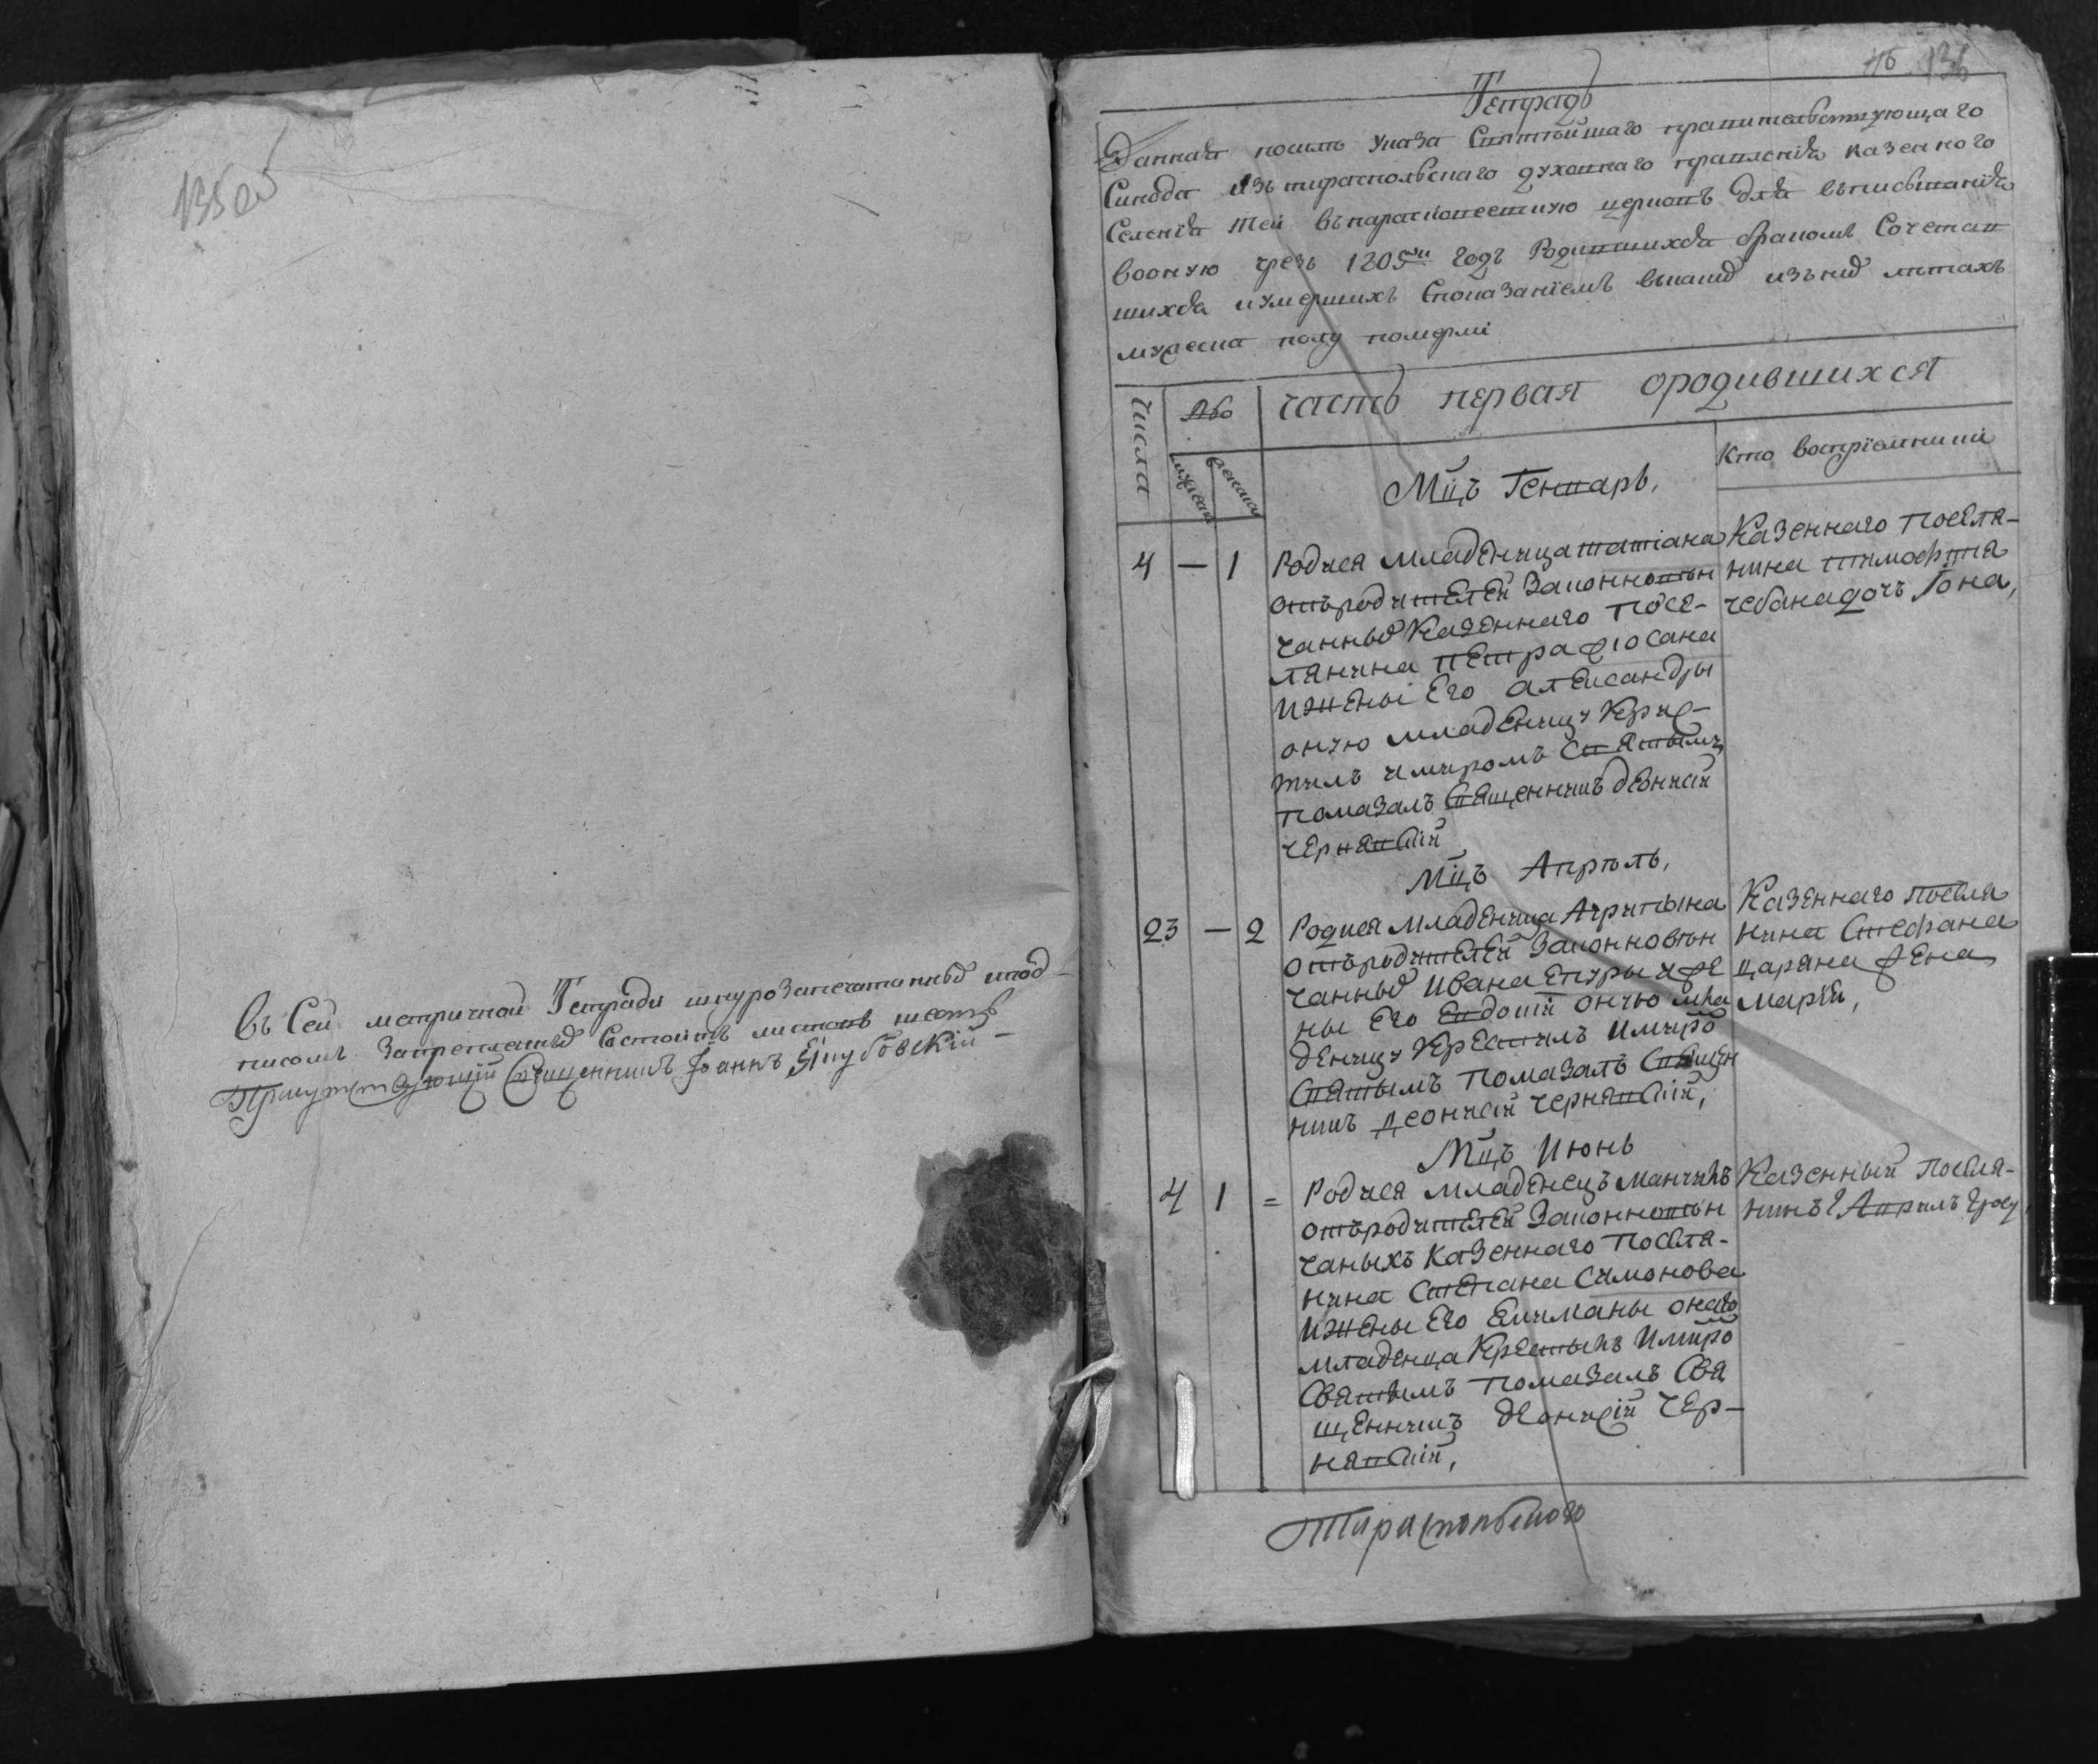 135 об
Въ Сей метричной Тетради шнурозапечатанныхъ и под-
писомъ закрепленыхъ Состоитъ листовъ шесть
Присутствующий Священникъ Іоаннъ Якубовский —
46 136
Тетрадь
Данная посилѣ указа Святѣйшаго правительствующаго
Синода изъ тираспольскаго духовнаго правленія казенного
Селенія Тей въ параскевеевскую церковъ для вписыванія
воону чрезъ 1805й годъ Родившихся бракомъ Сочетав
шихся и умершихъ Споказаніемъ изъ нихъ лѣтахъ
мужеска полу
Числа
часть первая ородившихся
мужеска женска
Мцъ Генварь,
Кто восприемники
4 — 1 Родися младеница татіана
отъ родителей Законновѣн
чанныхъ Казенного посе-
лянина петра
и жены Его александры
оную младеницу Крис-
тилъ и миромъ Святымъ
помазалъ Священникъ деонисій
чернявскій
Казенного Посѣля-
нина тимофтея
чебана дочъ Іона,
Мцъ Апрѣль,
23 — 2 Родися младеница Агрипына
отъ родителей Законновѣн
чанныхъ Ивана Епуры и же
ны Его Евдокіи оную мла
деницу Крестилъ и миро
Святымъ помазалъ Священ
никъ деонисій чернявскій,
Казенного посѣля
нина Стефана
царана жена
Мария,
Мцъ Июнь
4 1 = Родися младенецъ
отъ родителей Законновѣн
чаныхъ казенного Посѣля-
нина Степана Симонова
и жены Его онаго
младенца Крестылъ и миро
Святымъ помазалъ Свя
щенникъ деонисій Чер-
нявскій,
Казенный посѣля-
нинъ
Тираспольского